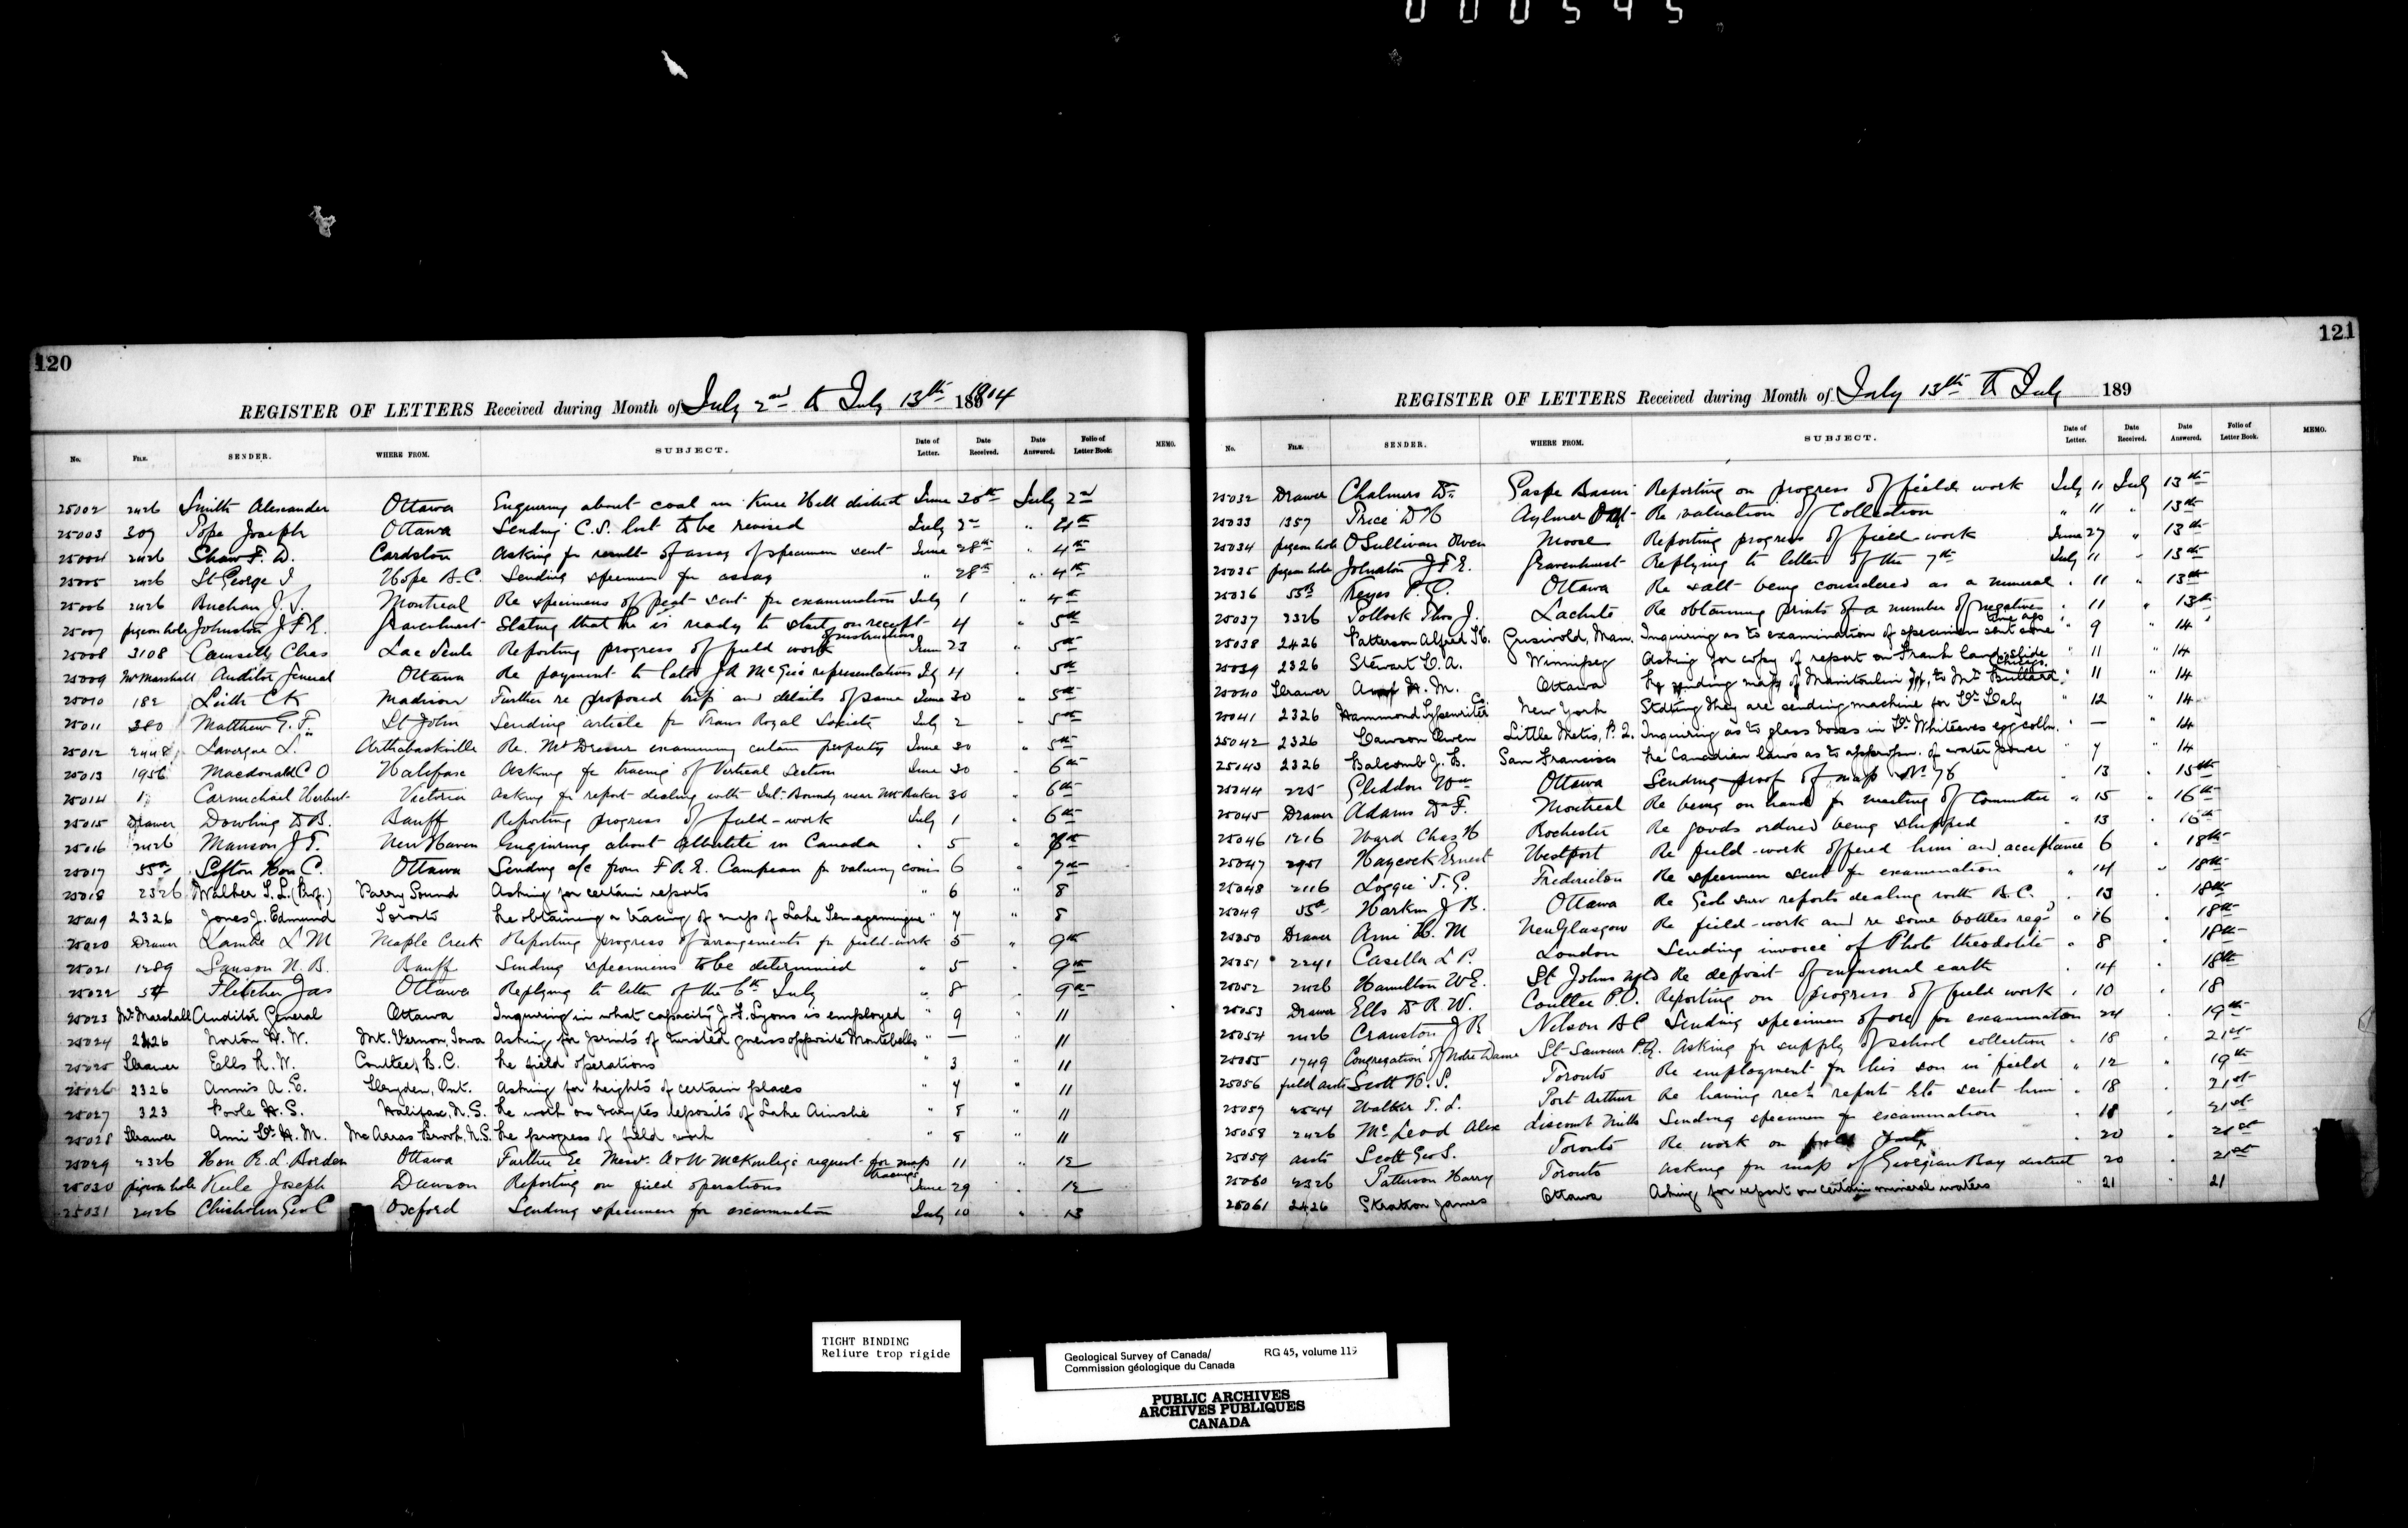 000545
120
REGISTER OF LETTERS Received during Month of July 2nd to July 13th 1904
No. FILE. SENDER. WHERE FROM. SUBJECT. Date of Letter. Date Received. Date Answered. Folio of Letter Book. MEMO.
25002 2426 Smith Alexander Ottawa Enquiring about coal in Knee Hill district June 30th July 2nd
25003 309 Pope Joseph Ottawa Sending C.S. list to be revised July 2nd " 4th
25004 2426 Shaw F. W. Cardston Asking for result of assay of specimen sent June 28th " 4th
25005 2426 St George J Hope B.C. Sending specimen for assay " 28th " 4th
25006 2426 Buchan J. S. Montreal Re specimens of peat sent for examination July 1 " 4th
25007 pigeon hole Johnston J.F.E. Gravenhurst Stating that he is ready to start on receipt of instructions 4 " 5th
25008 3108 Camsell Chas Lac Seule Reporting progress of field work June 23 " 5th
25009 Mr Marshall Auditor General Ottawa Re payment to late J R McGee's representatives Jy 4 " 5th
25010 182 Leith C K Madison Further re proposed trip and details of same June 30 " 5th
25011 380 Matthew G. F. St John Sending article for Trans Royal Society July 2 " 5th
25012 2448 Lavergne L. Arthabaskaville Re. Mr Dresser examining certain property June 30 " 5th
25013 1956 Macdonald C O Halifax Asking for tracing of Vertical Section June 30 " 6th
25014 1 Carmichael Herbert Victoria Asking for report dealing with Int. Boundy near Mt Baker 30 " 6th
25015 Drawer Dowling D. B. Banff Reporting progress of field-work July 1 " 6th
25016 2426 Manson J. T. New Haven Enquiring about Albertite in Canada " 5 " 7th
25017 55a Sefton Hon C. Ottawa Sending a/c from F.R.E. Campeau for valuing coins 6 " 7th
25018 2326 Walker T. L. (Prof.) Parry Sound Asking for certain reports " 6 " 8
25019 2326 Jones J. Edmund Toronto Re obtaining a tracing of map of Lake Temagamingue " 7 " 8
25020 Drawer Lambe L M Maple Creek Reporting progress of arrangements for field-work 5 " 9th
25021 1289 Sanson N. B. Banff Sending specimens to be determined " 5 " 9th
25022 54 Fletcher Jas Ottawa Replying to letter of the 6th July " 8 " 9th
25023 Mr. Marshall Auditor General Ottawa Inquiring in what capacity J. F. Lyons is employed " 9 11
25024 2326 Norton H. W. Mt. Vernon, Iowa Asking for prints of twisted gneiss opposite Montebello " — 11
25025 Drawer Ells R. W. Coultee, B.C. Re field operations " 3 11
25026 2326 Annis A. E. Ont. Asking for heights of certain places " 7 " 11
25027 323 Poole H. S. Halifax, N.S. Re work on barytes deposits of Lake Ainslie " 8 " 11
25028 Drawer Ami Dr. H. M. McArras Brook, N.S. Re progress of field work " 8 " 11
25029 2326 Hon R. L. Borden Ottawa Further Re Messr. A & W McKinlay's request for map tracings 11 " 12
25030 pigeon hole Keele Joseph Dawson Reporting on field operations June 29 " 12
25031 2426 Chisholm Geo C Oxford Sending specimen for examination July 10 " 13
121
REGISTER OF LETTERS Received during Month of July 13th to July 189
No. FILE. SENDER. WHERE FROM. SUBJECT. Date of Letter. Date Received. Date Answered. Folio of Letter Book. MEMO.
25032 Drawer Chalmers Dr. Gaspe Basin Reporting on progress of field work July 11 July 13th
25033 1357 Price D H Aylmer Ont Re valuation of Collection " 11 " 13th
25034 pigeon hole O'Sullivan Owen Moose Reporting progress of field-work June 27 " 13th
25035 pigeon hole Johnston J.F.E. Gravenhurst Replying to letter of the 7th July 11 " 13th
25036 55B Keyes P. C. Ottawa Re salt being considered as a mineral " 11 " 13th
25037 2326 Pollock Thos J. Lachute Re obtaining prints of a number of negatives " 11 " 13th
25038 2426 Patterson Alfred H. Griswold, Man. Inquiring as to examination of specimen sent some time ago " 9 " 14
25039 2326 Stewart C. A. Winnipeg Asking for copy of report on Frank Land-slide " 11 " 14
25040 Drawer Ami H. M. Ottawa Re sending map of Manitoulin Id., to Mr. Bullard, Chicago. " 11 " 14
25041 2326 Hammond Typewriter Co New York Stating they are sending machine for Dr. Daly " 12 " 14
25042 2326 Dawson Owen Little Metis, P. Q. Inquiring as to glass boxes in Dr. Whiteaves egg colln. " — " 14
25043 2326 Balcomb J. B. San Francisco Re Canadian laws as to appropn. of water power " 7 " 14
25044 225 Gliddon Wm Ottawa Sending proof of map No. 76 " 13 " 15th
25045 Drawer Adams Dr F. Montreal Re being on hand for meeting of Committee " 15 " 16th
25046 1216 Ward Chas H Rochester Re goods ordered being shipped " 13 " 16th
25047 2951 Haycock Ernest Westport Re field-work offered him and acceptance 6 " 18th
25048 2116 Loggie T. G. Fredericton Re specimen sent for examination " 14 " 18th
25049 55a Harkin J B. Ottawa Re Geol Surv reports dealing with B.C. " 13 " 18th
25050 Drawer Ami H. M New Glasgow Re field-work and re some bottles reqd " 16 " 18th
25051 2241 Casella L P. London Sending invoice of Photo theodolite " 8 " 18th
25052 2426 Hamilton W E. St Johns Nfld Re deposit of infusorial earth " 14 " 18th
25053 Drawer Ells Dr R W. Coultee P.O. Reporting on progress of field work " 10 " 18
25054 2426 Cranston J R Nelson B C Sending specimen of ore for examination 24 " 19th
25055 1749 Congregation of Notre Dame St. Sauveur P.Q. Asking for supply of school collection " 18 " 21st
25056 field assts Scott H. S. Toronto Re employment for his son in field " 12 " 19th
25057 2544 Walker T. L. Port Arthur Re having recd reports etc sent him " 18 " 21st
25058 2426 McLeod Alex Liscomb Mills Sending specimen for examination " 18 " 21st
25059 assts Scott Geo S. Toronto Re work on field " 20 " 21st
25060 2326 Patterson Harry Toronto Asking for map of Georgian Bay district 20 " 21st
25061 2426 Stratton James Ottawa Asking for report on certain mineral waters " 21 " 21
TIGHT BINDING
Reliure trop rigide
Geological Survey of Canada/ RG 45, volume 115
Commission géologique du Canada
PUBLIC ARCHIVES
ARCHIVES PUBLIQUES
CANADA